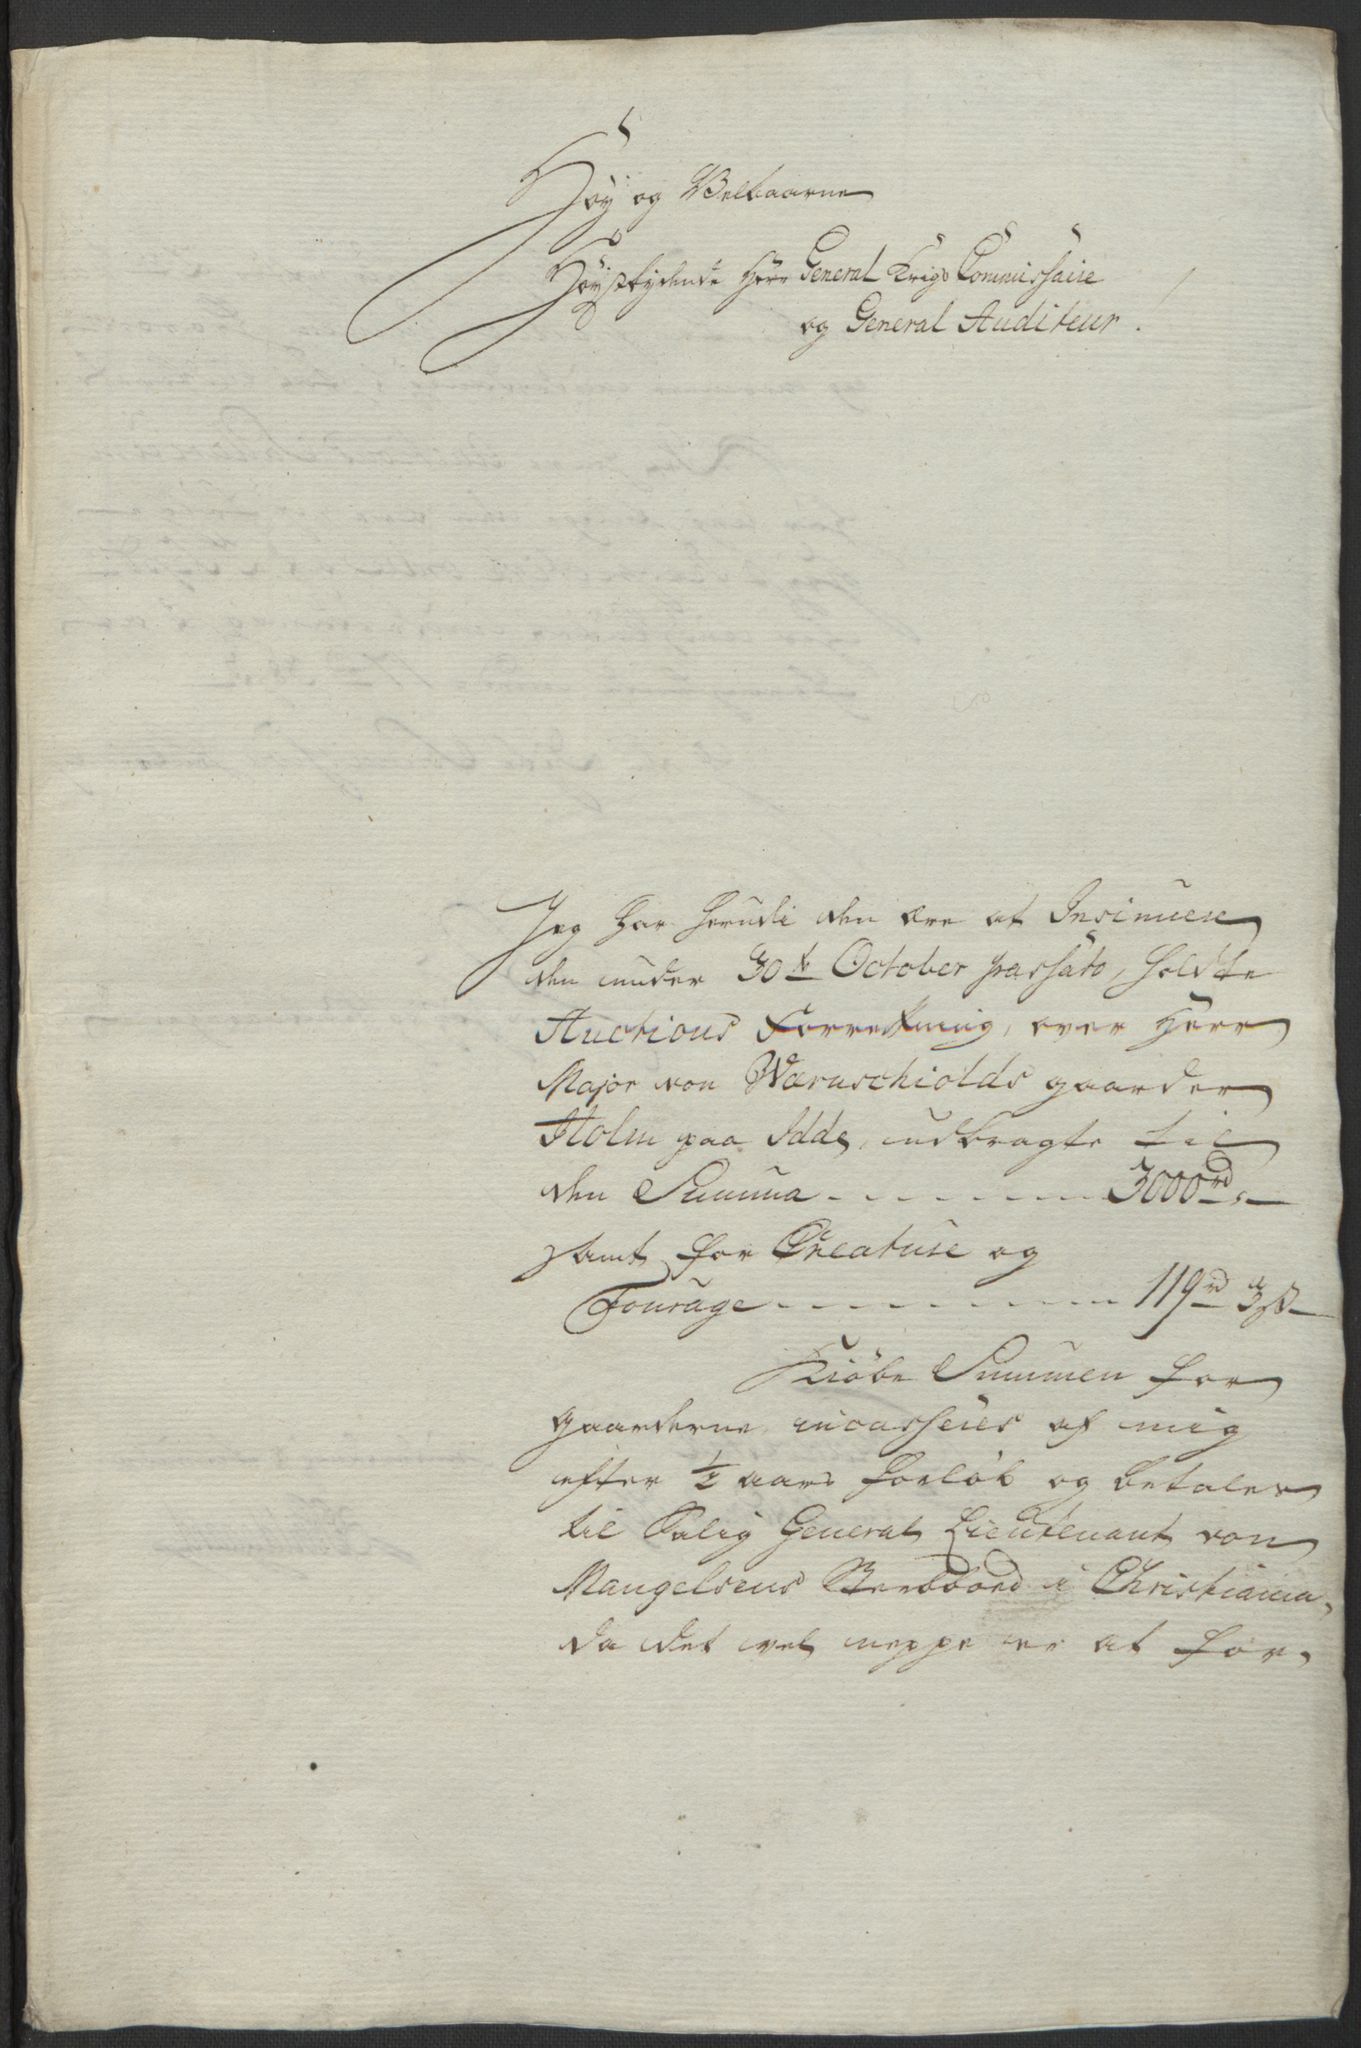 Høy og Velbaarne
Høystydende Herr General Krigs Commissaire
og General Auditeur.
Jeg har herudi den ære at Insinuere
den under 30te October passato, holdte
Auctions Forretning, over Herr
Major von Wærnschiolds gaarder
Holm paa Idde, udbragte til
den Summa - - - - - - 3000rd,-
samt for Creature og
Fourage - - - - - - - - - 119rd 3ß
Kiøbe Summen for
gaarderne incasseres af mig
efter 1/2 aars forløb og betales
til Salig General Lieutenant von
Mangelsens Sterbboed i Christiania,
da det vel neppe er at for-